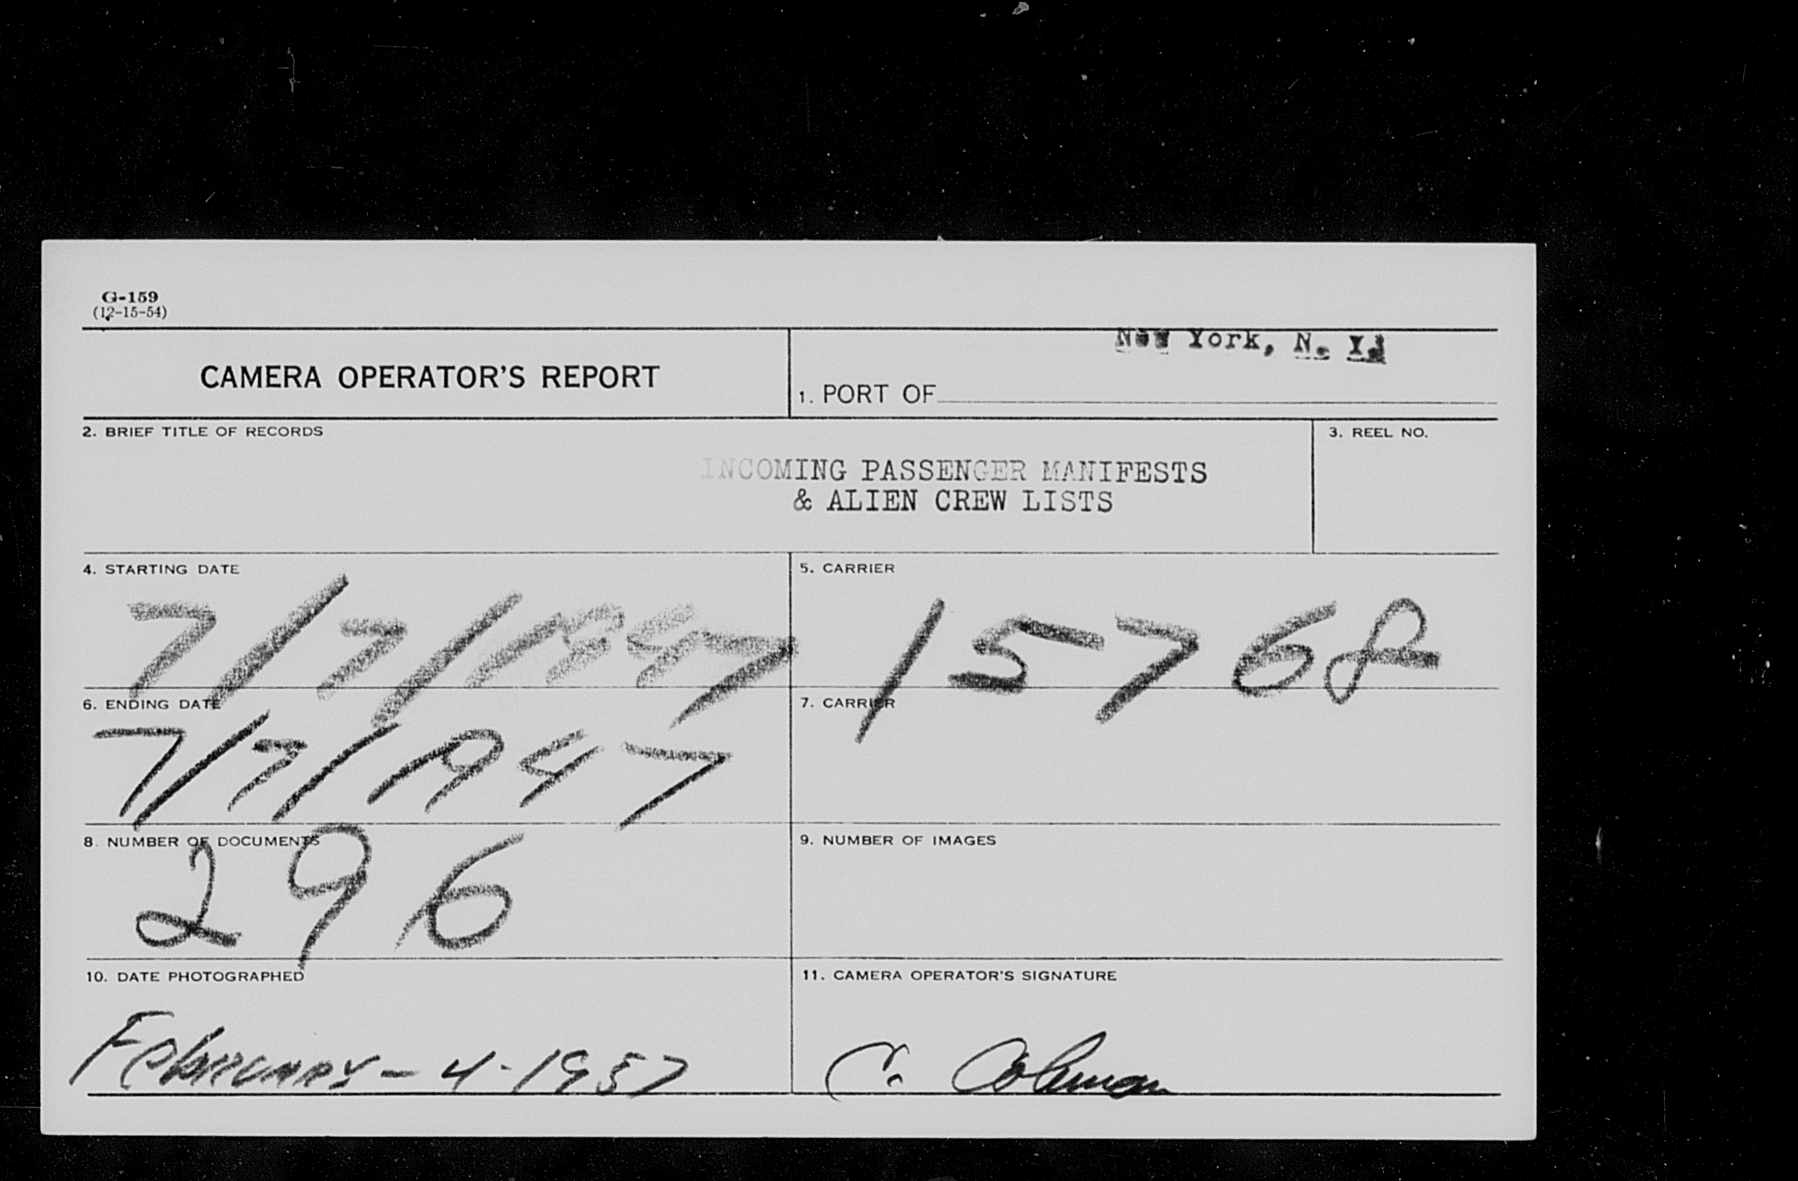 G-159
(12-15-54)
CAMERA OPERATOR'S REPORT
1. PORT OF
New York, N. Y.
2. BRIEF TITLE OF RECORDS
INCOMING PASSENGER MANIFESTS
& ALIEN CREW LISTS
3. REEL NO.
4. STARTING DATE
7/7/1947
5. CARRIER
15768
6. ENDING DATE
7/7/1947
7. CARRIER
8. NUMBER OF DOCUMENTS
296
9. NUMBER OF IMAGES
10. DATE PHOTOGRAPHED
February - 4 - 1957
11. CAMERA OPERATOR'S SIGNATURE
C. Coleman